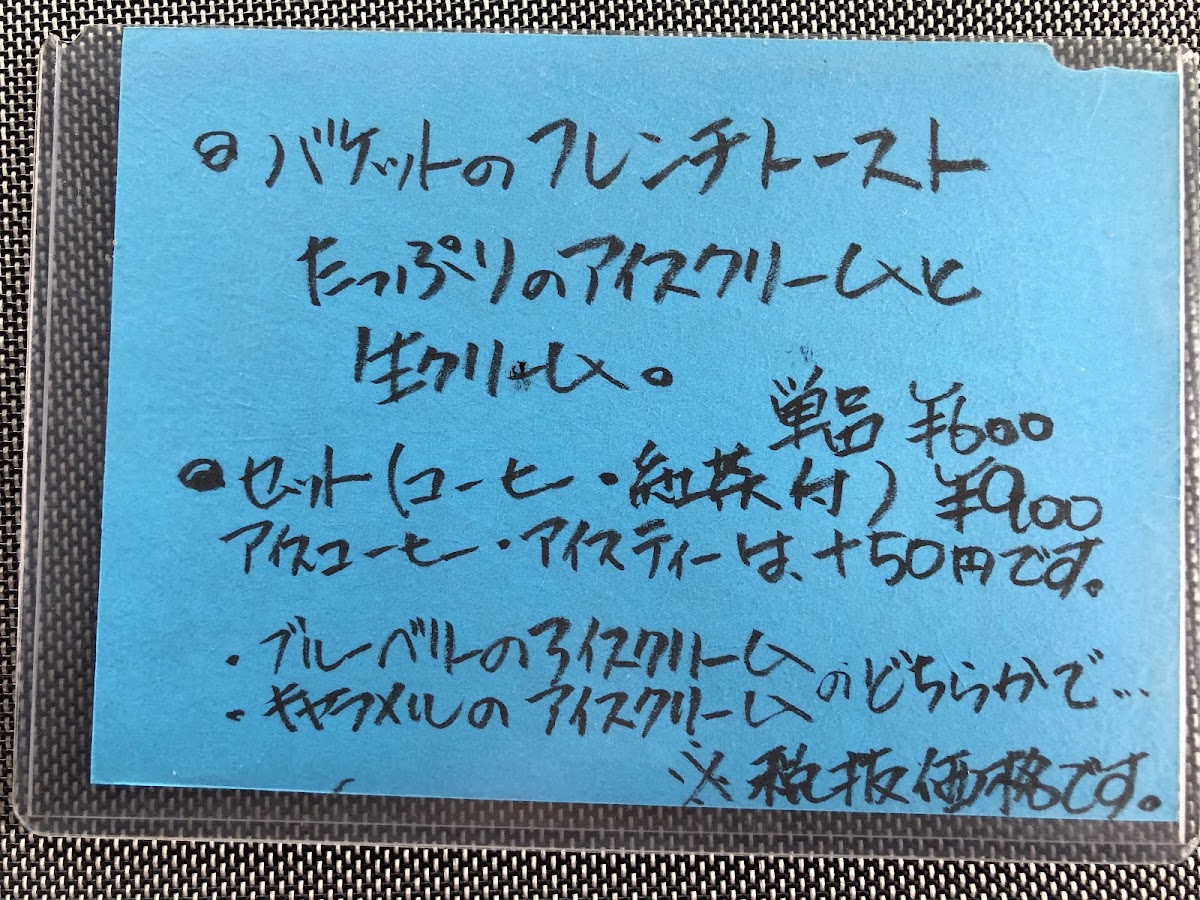 ● バケットのフレンチトースト
たっぷりのアイスクリームと
生クリーム。
単品 ¥600
● セット(コーヒー・紅茶付) ¥900
アイスコーヒー・アイスティーは、+50円です。
・ブルーベリーのアイスクリーム
・キャラメルのアイスクリーム
のどちらかで…
※税抜価格です。